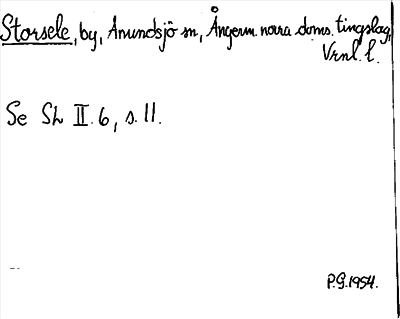 Storsele, by, Anundsjö sn, Ångerm. norra doms. tingslag,
Vrnl. l.
Se Sh II. 6, s. 11.
P.G. 1954.